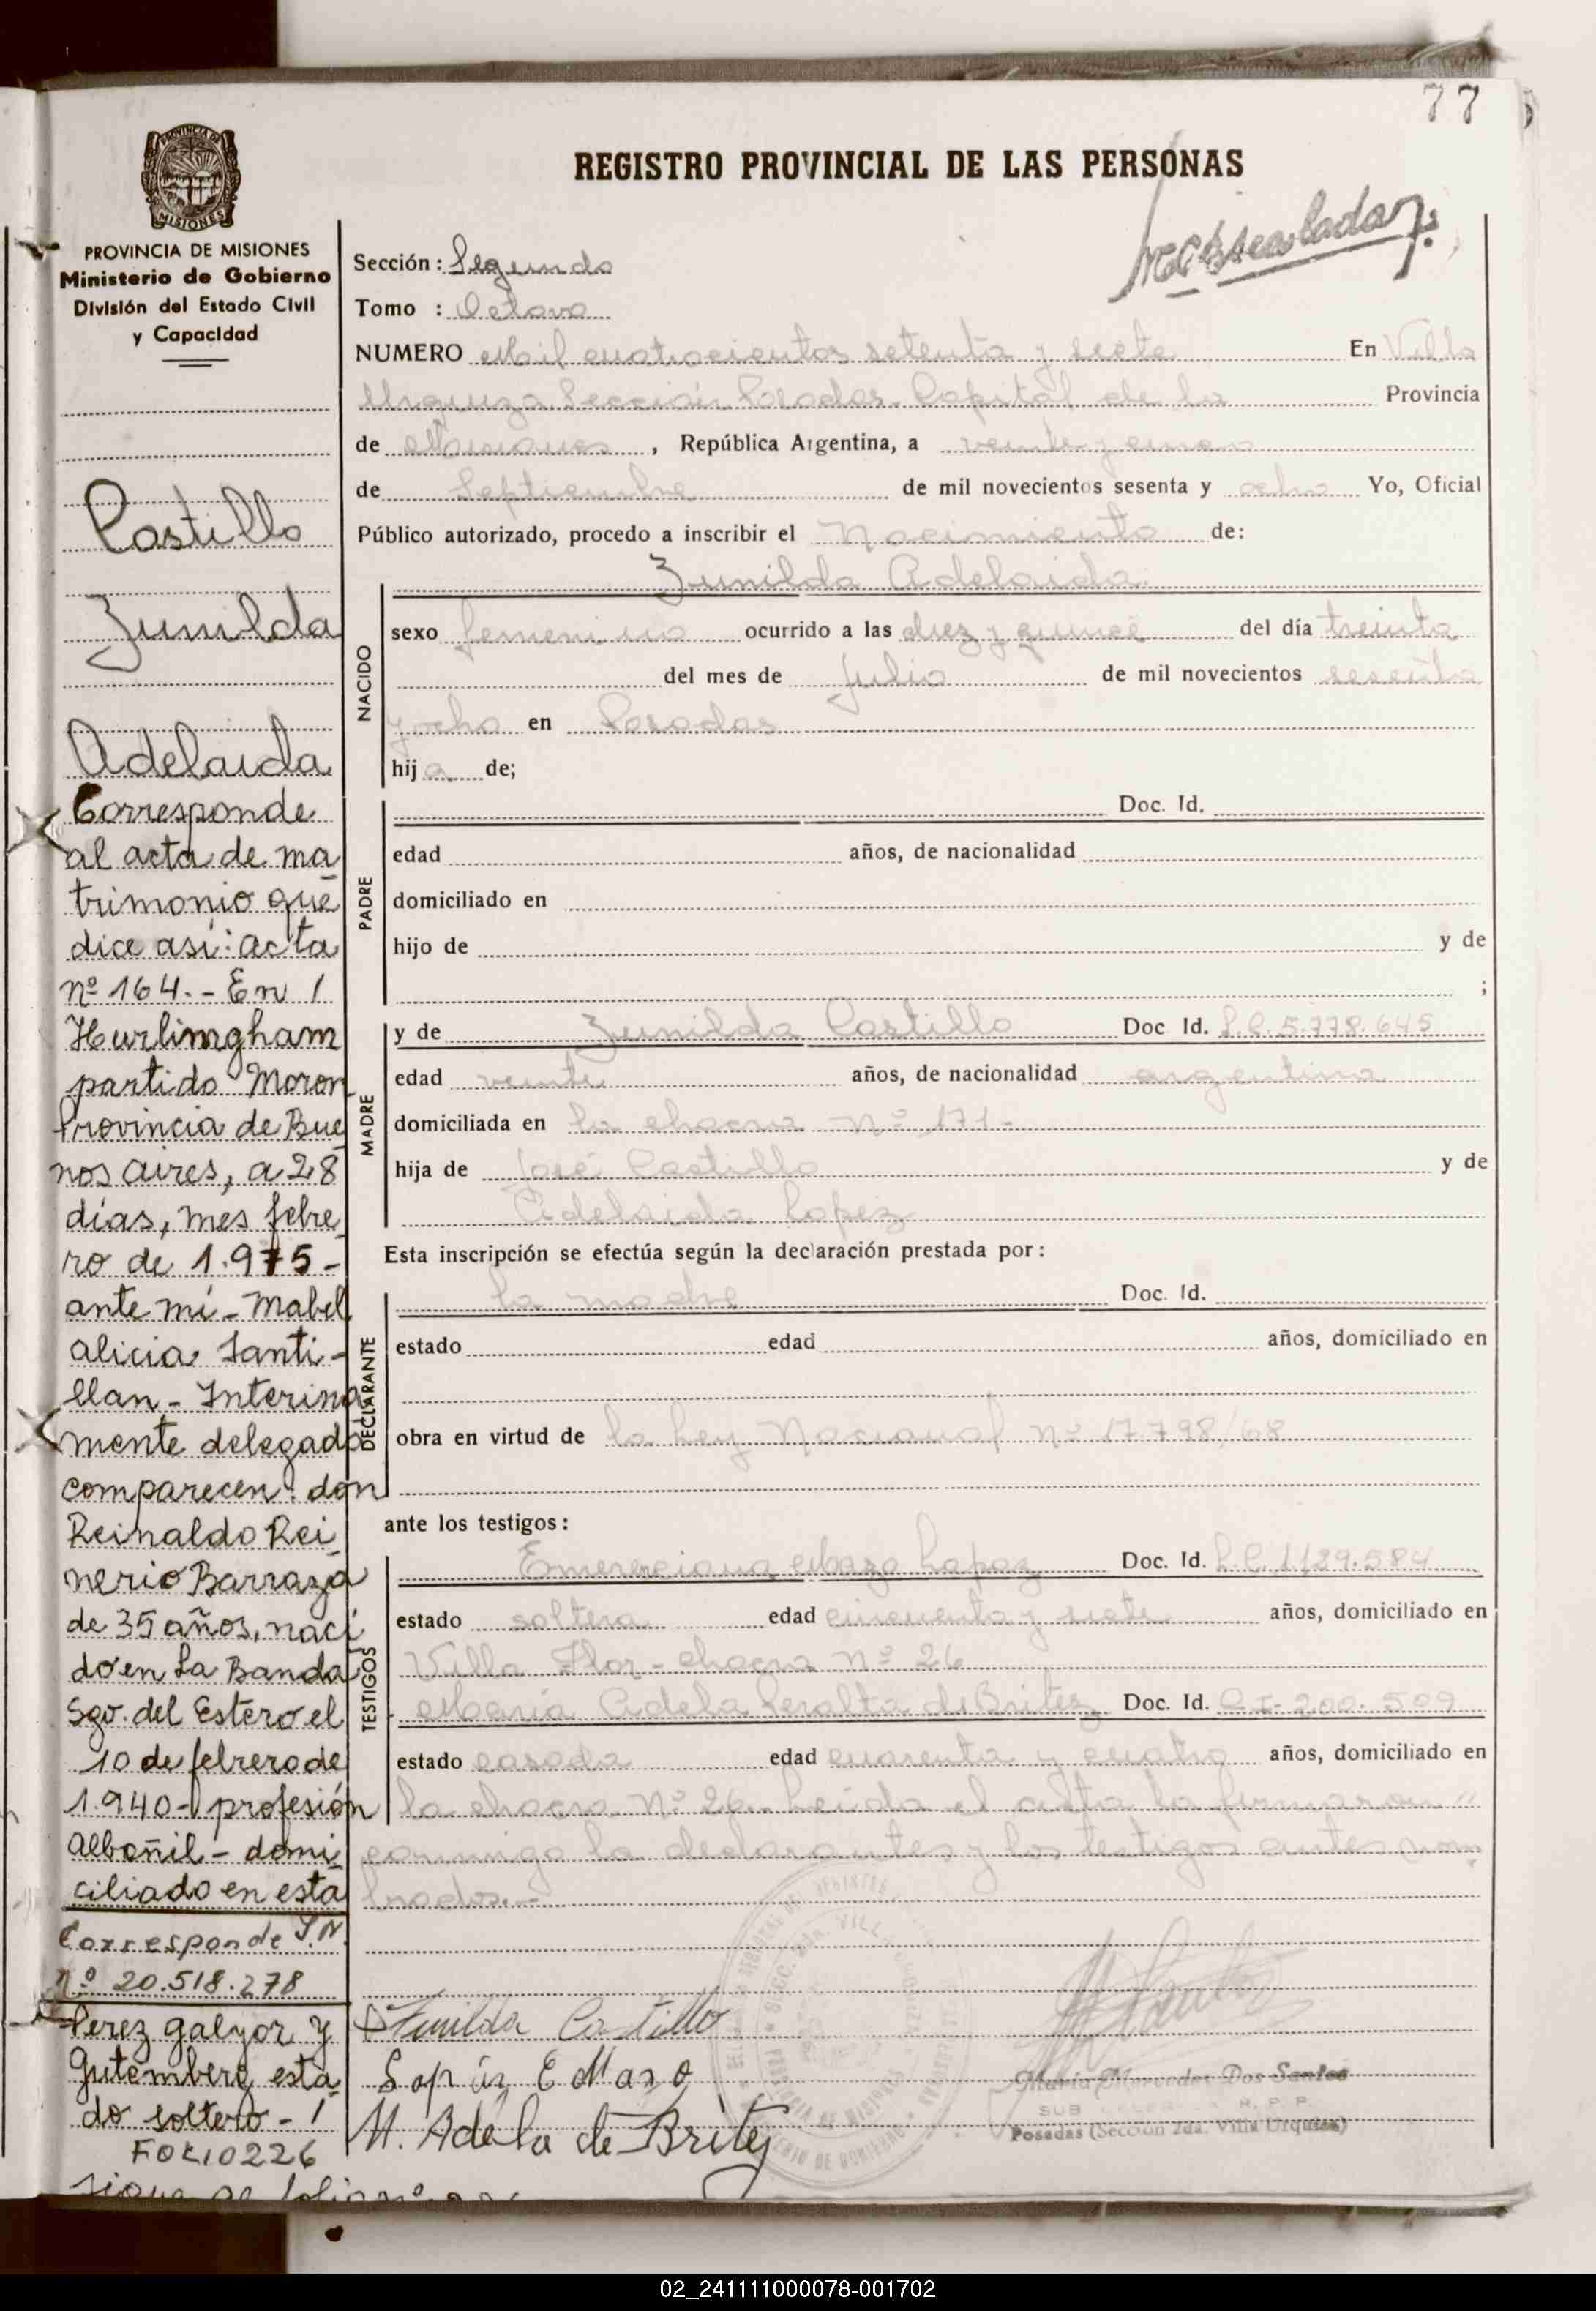 77
REGISTRO PROVINCIAL DE LAS PERSONAS
PROVINCIA DE
MISIONES
PROVINCIA DE MISIONES
Ministerio de Gobierno
División del Estado Civil
y Capacidad
Castillo
Zunilda
Adelaida
Corresponde
al acta de ma
trimonio que
dice asi: acta
nº 164.- En /
Hurlimgham
partido Moron
Provincia de Bue
nos aires, a 28
días, mes febre
ro de 1.975-
ante mí - Mabel
alicia Santi-
llan - Interina
mente delegado
comparecen: don
Reinaldo Rei
nerio Barraza
de 35 años, naci
do en La Banda
Sgo. del Estero el
10 de febrero de
1.940 - profesión
Albañil - domi
ciliado en esta
Corresponde I.N.
nº 20.518.278
Perez galyor y
Gutemberg, esta
do soltero - /
FOLIO 226
sigue al folio nº
Sección: Segunda
Tomo : Octavo
NUMERO Mil cuatrocientos setenta y siete En Villa
Urquiza Sección Posadas Capital de la Provincia
de Misiones, República Argentina, a veinte y cinco
de Septiembre de mil novecientos sesenta y ocho Yo, Oficial
Público autorizado, procedo a inscribir el Nacimiento de:
Zunilda Adelaida
NACIDO
sexo femenino ocurrido a las diez y quince del día treinta
del mes de Julio de mil novecientos sesenta
y ocho en Posadas
hija de;
PADRE
Doc. Id.
edad años, de nacionalidad
domiciliado en
hijo de y de
;
MADRE
y de Zunilda Castillo Doc Id. L.C. 5.778.645
edad veinte años, de nacionalidad argentina
domiciliada en la chacra Nº 171-
hija de José Castillo y de
Adelaida Lopez
Esta inscripción se efectúa según la declaración prestada por:
DECLARANTE
la madre Doc. Id.
estado edad años, domiciliado en
obra en virtud de la Ley Nacional nº 17.798/68
ante los testigos:
TESTIGOS
Emerenciana Maza Lopez Doc. Id. L.C. 1.129.584
estado soltera edad cincuenta y siete años, domiciliado en
Villa Flor - chacra nº 26
Maria Adela Peralta de Britez Doc. Id. C.I- 200.509
estado casada edad cuarenta y cuatro años, domiciliado en
la chacra Nº 26. Leida el acta la firmaron
conmigo la declarante y los testigos antes nom
brados.-
Zunilda Castillo
Lopez E Maza
M. Adela de Britez
María Mercedes Dos Santos
Posadas (Sección 2da. Villa Urquiza)
02_241111000078-001702